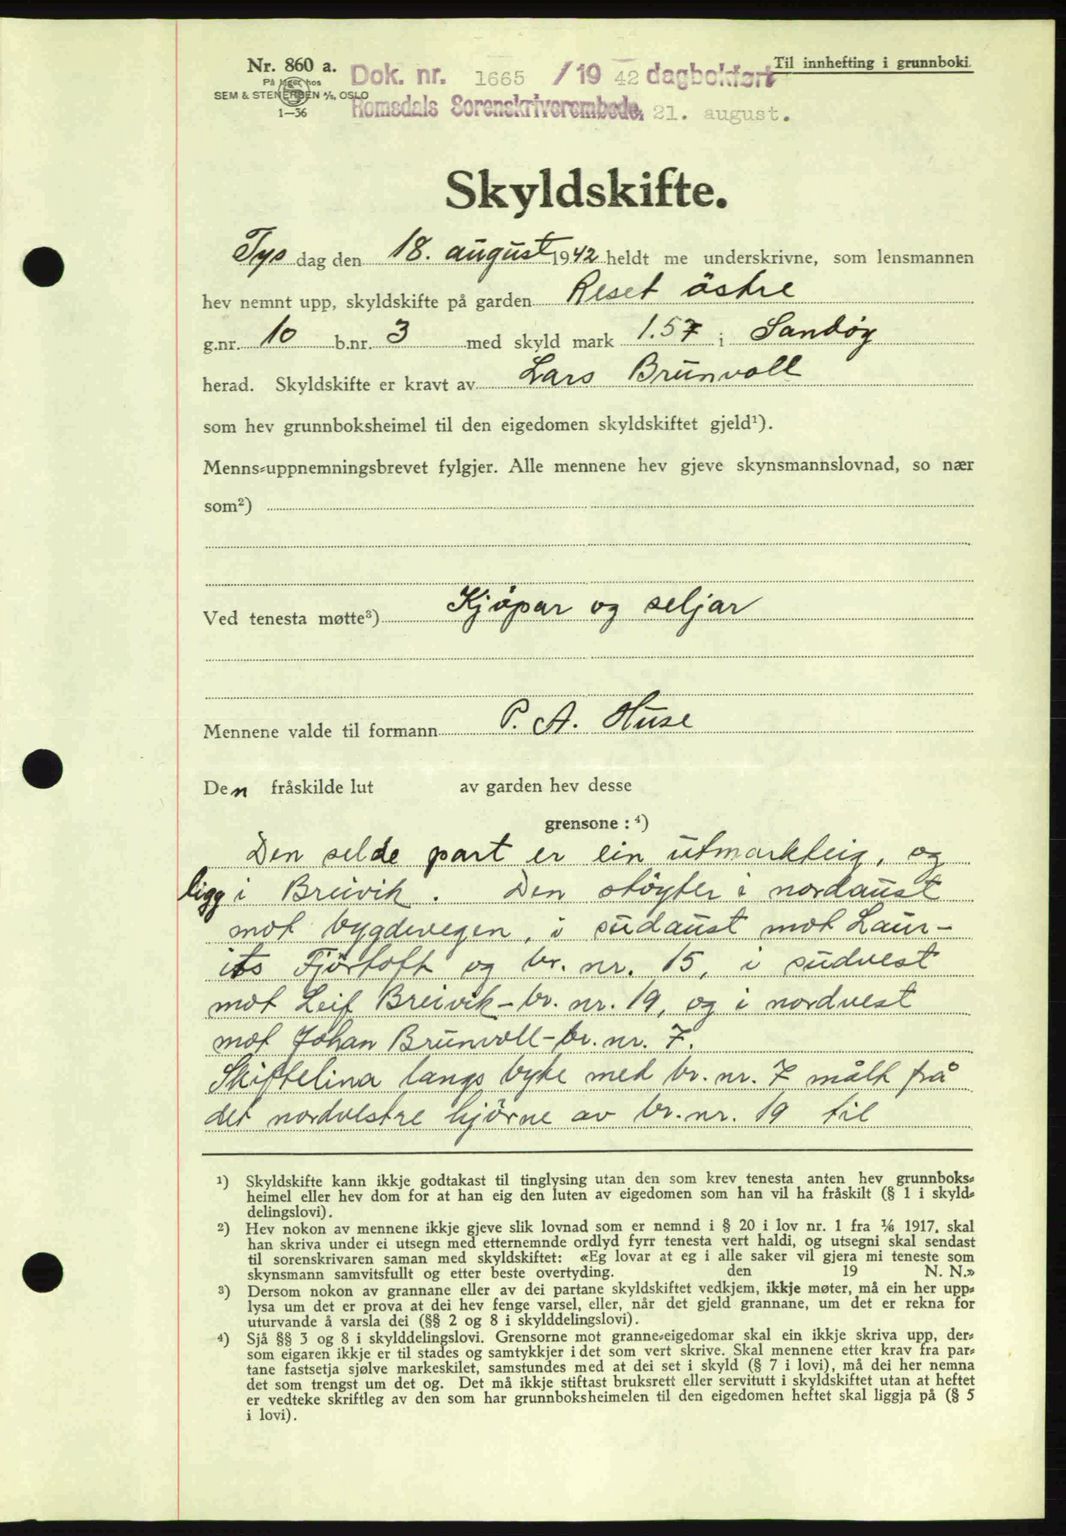 Nr. 860 a.
På lager hos
SEM & STENERSEN A/S, OSLO
1—36
Til innhefting i grunnboki.
Dok. nr. 1665 /19 42 dagbokført
Romsdals Sorenskriverembede, 21. august.
Skyldskifte.
Tys dag den 18. august 1942 heldt me underskrivne, som lensmannen
hev nemnt upp, skyldskifte på garden Reset östre
g.nr. 10 b.nr. 3 med skyld mark 1.57 i Sandöy
herad. Skyldskifte er kravt av Lars Brunvoll
som hev grunnboksheimel til den eigedomen skyldskiftet gjeld¹).
Menns-uppnemningsbrevet fylgjer. Alle mennene hev gjeve skynsmannslovnad, so nær
som²)
Ved tenesta møtte³) Kjöpar og seljar
Mennene valde til formann P. A. Huse
Den fråskilde lut av garden hev desse
grensone : ⁴)
Den selde part er ein utmarkteig, og
ligg i Breivik. Den stöyter i nordaust
mot bygdevegen, i sudaust mot Laur-
its Fjörtoft og br. nr. 15, i sudvest
mot Leif Breivik - br. nr. 19, og i nordvest
mot Johan Brunvoll - br. nr. 7.
Skiftelina langs byte med br. nr. 7 målt frå
det nordvestre hjörne av br. nr. 19 til
¹) Skyldskifte kann ikkje godtakast til tinglysing utan den som krev tenesta anten hev grunnboks-
heimel eller hev dom for at han eig den luten av eigedomen som han vil ha fråskilt (§ 1 i skyld-
delingslovi).
²) Hev nokon av mennene ikkje gjeve slik lovnad som er nemnd i § 20 i lov nr. 1 fra ⅙ 1917, skal
han skriva under ei utsegn med etternemnde ordlyd fyrr tenesta vert haldi, og utsegni skal sendast
til sorenskrivaren saman med skyldskiftet: «Eg lovar at eg i alle saker vil gjera mi teneste som
skynsmann samvitsfullt og etter beste overtyding. den 19 N. N.»
³) Dersom nokon av grannane eller av dei partane skyldskiftet vedkjem, ikkje møter, må ein her upp-
lysa um det er prova at dei hev fenge varsel, eller, når det gjeld grannane, um det er rekna for
uturvande å varsla dei (§§ 2 og 8 i skylddelingslovi).
⁴) Sjå §§ 3 og 8 i skylddelingslovi. Grensorne mot granne-eigedomar skal ein ikkje skriva upp, der-
som eigaren ikkje er til stades og samtykkjer i det som vert skrive. Skal mennene etter krav fra par-
tane fastsetja sjølve markeskilet, samstundes med at dei set i skyld (§ 7 i lovi), må dei her nemna
det som trengst um det og. Det må ikkje stiftast bruksrett eller servitutt i skyldskiftet utan at heftet
er vedteke skriftleg av den som har grunnboksheimelen til den eigedomen heftet skal liggja på (§ 5
i lovi).